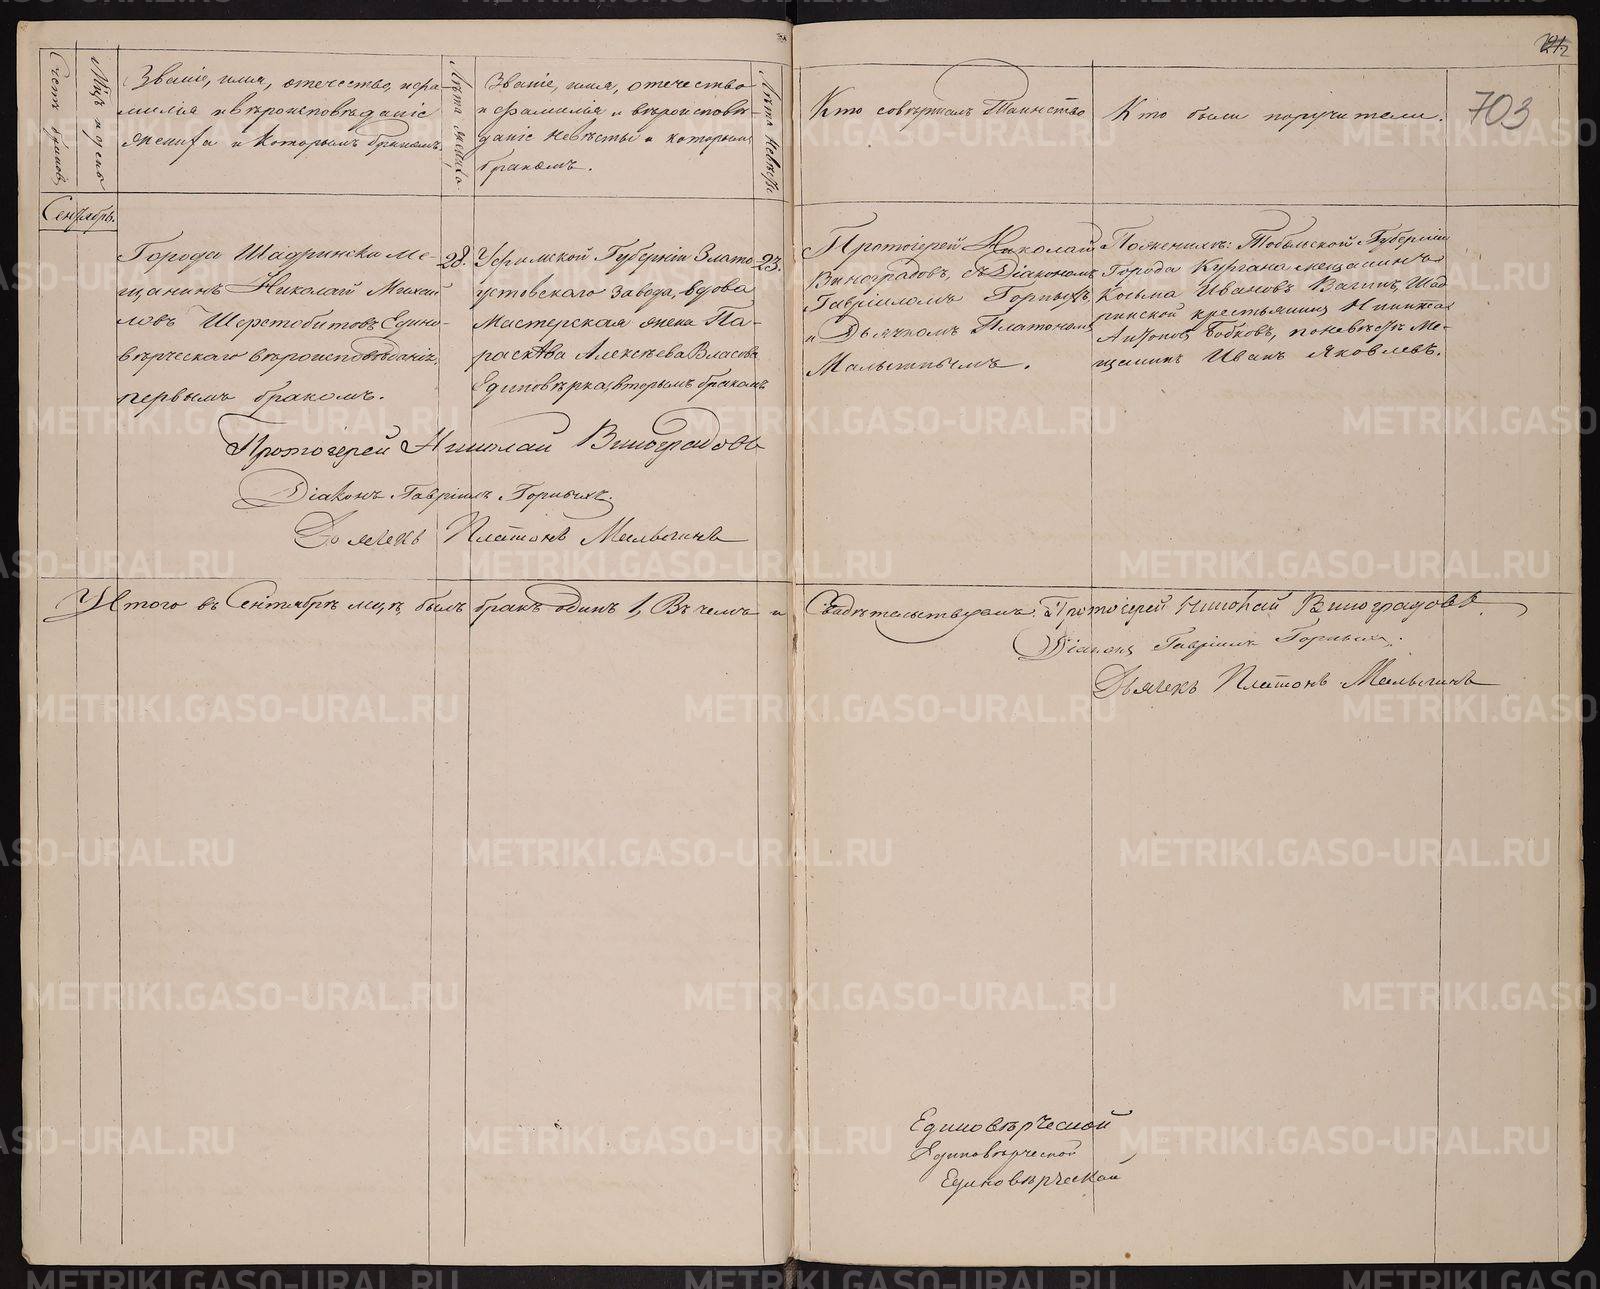 703
Счетъ браковъ
Мцъ и день
Званіе, имя, отечество, и фа-
милія и вѣроисповѣданіе
жениха и которымъ бракомъ.
Лѣта жениха
Званіе, имя, отечество
и фамилія и вѣроисповѣ-
даніе невѣсты и которымъ
бракомъ.
Лѣта невѣсты
Кто совершалъ Таинство
Кто были поручители.
Сентябрь.
Города Шадринска Ме-
щанинъ Николай Михай
ловъ Шерстобитовъ Едино-
вѣрческаго вѣроисповѣданія,
первымъ бракомъ.
28.
Уфимской Губерніи Злато
устовскаго завода, вдова
Мастерская жена Па-
раскѣва Алексѣева Власова
Единовѣрка, вторымъ бракомъ
23.
Протоіерей Николай
Виноградовъ, съ Діакономъ
Гавріиломъ Горныхъ,
и Дьячкомъ Платономъ
Малыгинымъ.
По женихѣ: Тобольской Губерніи
Города Кургана мещанинъ
Козьма Ивановъ Вагинъ, Шад
ринской крестьянинъ Никита
Антоновъ Бобковъ, по невѣстѣ Ме-
щанинъ Иванъ Яковлевъ.
Протоіерей Николай Виноградовъ
Діаконъ Гавріилъ Горныхъ.
Дьячекъ Платонъ Малыгинъ
Итого въ Сентябрѣ мцѣ былъ бракъ одинъ 1, Въ чемъ и Свидѣтельствуемъ: Протоіерей Николай Виноградовъ.
Діаконъ Гавріилъ Горныхъ.
Дьячекъ Платонъ Малыгинъ
Единовѣрческой
Единовѣрческой
Единовѣрческой
METRIKI.GASO-URAL.RU